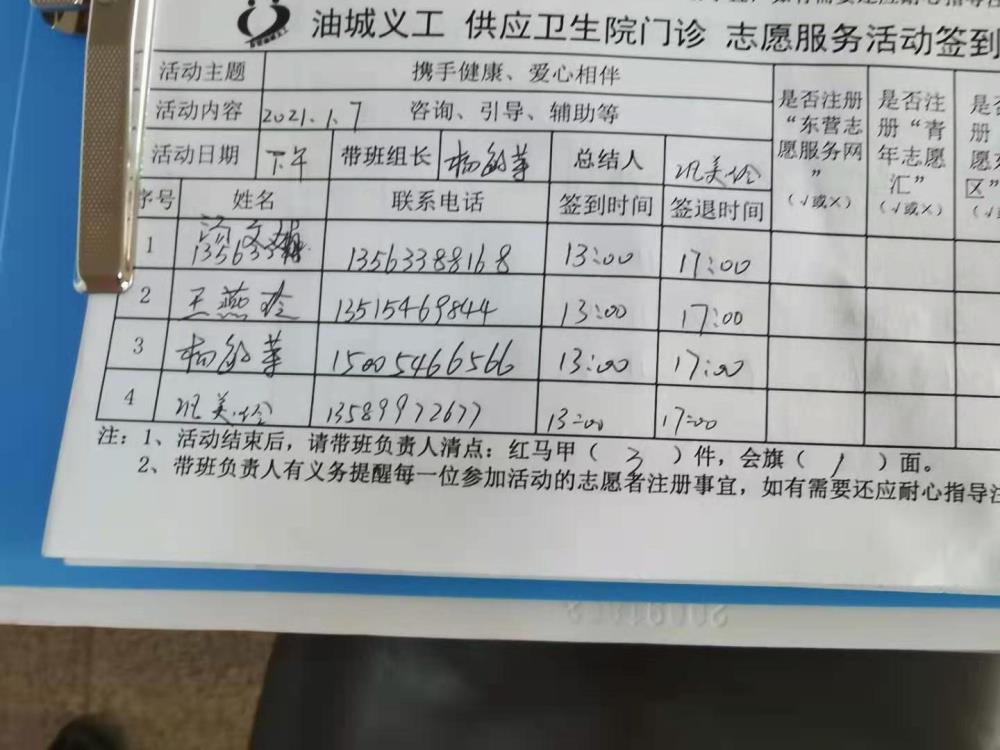 油城义工 供应卫生院门诊 志愿服务活动签到
活动主题 携手健康、爱心相伴 是否注册“东营志愿服务网”(√或×) 是否注册“青年志愿汇”(√或×)
活动内容 2021.1.7 咨询、引导、辅助等
活动日期 下午 带班组长 杨敏华 总结人 美玲
序号 姓名 联系电话 签到时间 签退时间
1 13563388168 13:00 17:00
2 王燕玲 13515469844 13:00 17:00
3 杨敏华 15005466566 13:00 17:00
4 美玲 13589972677 13:00 17:00
注：1、活动结束后，请带班负责人清点：红马甲（3）件，会旗（1）面。
2、带班负责人有义务提醒每一位参加活动的志愿者注册事宜，如有需要还应耐心指导注